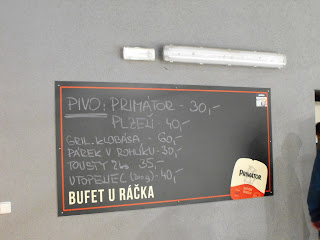 PIVO: PRIMÁTOR - 30,-
PLZEŇ - 40,-
GRIL. KLOBÁSA - 60,-
PÁREK V ROHLÍKU - 30,-
TOUSTY 2ks 35,-
UTOPENEC - 40,-
BUFET U RÁČKA
PRIMÁTOR